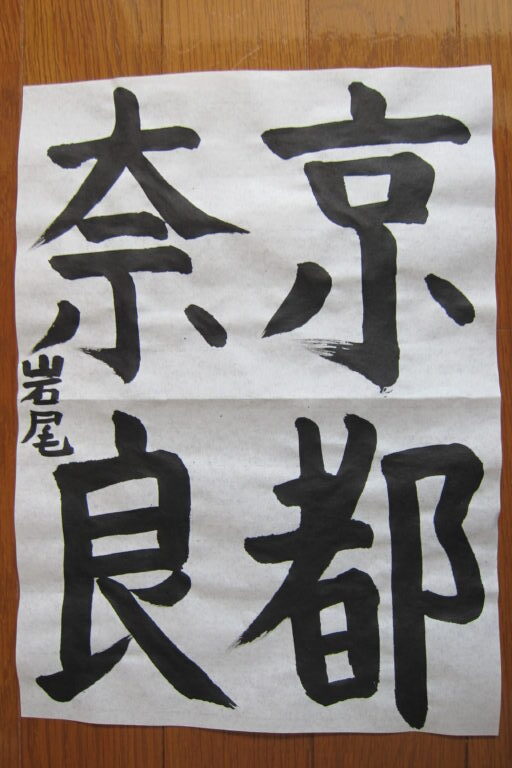 京都
奈良
岩尾